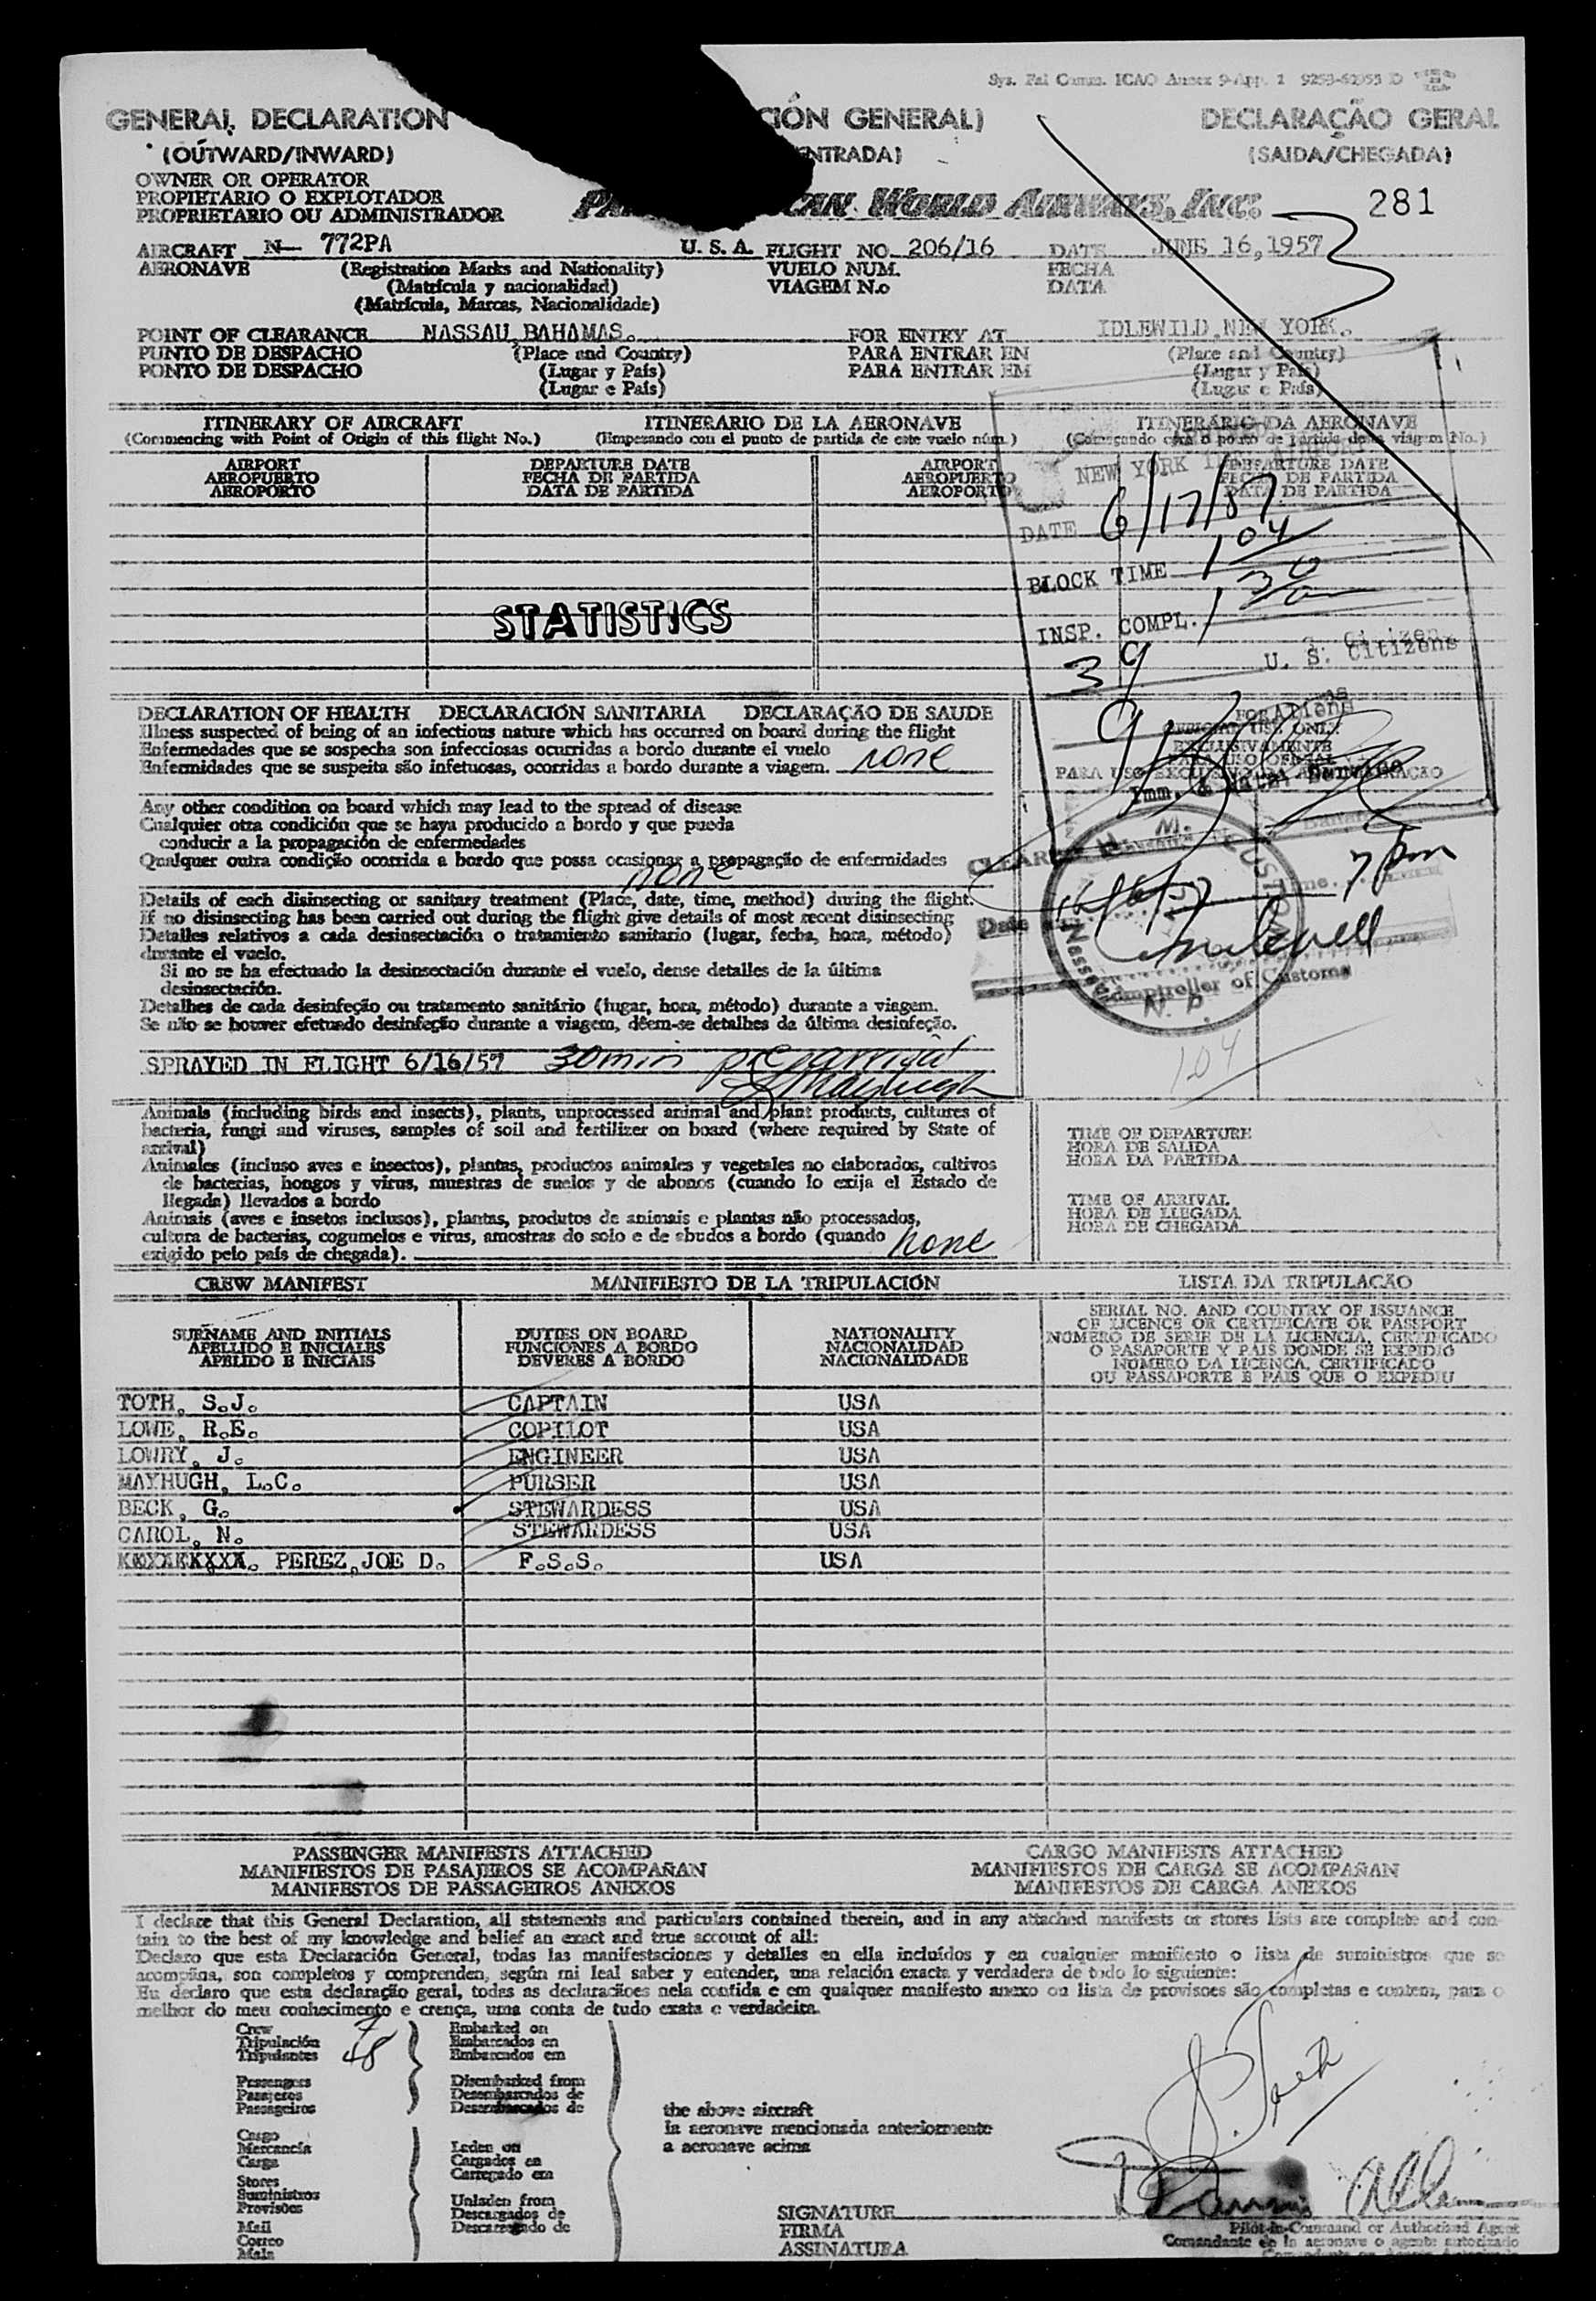 Sys. Fal Comm. ICAO Annex 9-App. 1
GENERAL DECLARATION CIÓN GENERAL) DECLARAÇÃO GERAL
(OUTWARD/INWARD) NTRADA) (SAIDA/CHEGADA)
OWNER OR OPERATOR
PROPIETARIO O EXPLOTADOR
PROPRIETARIO OU ADMINISTRADOR
CAN WORLD AIRWAYS, INC. 281
AIRCRAFT N- 772PA U. S. A. FLIGHT NO. 206/16 DATE JUNE 16, 1957
AERONAVE (Registration Marks and Nationality) VUELO NUM. FECHA
(Matrícula y nacionalidad) VIAGEM N.o DATA
(Matrícula, Marcas, Nacionalidade)
POINT OF CLEARANCE NASSAU, BAHAMAS. FOR ENTRY AT IDLEWILD, NEW YORK.
PUNTO DE DESPACHO (Place and Country) PARA ENTRAR EN (Place and Country)
PONTO DE DESPACHO (Lugar y País) PARA ENTRAR EM (Lugar y País)
(Lugar e País) (Lugar e País)
ITINERARY OF AIRCRAFT ITINERARIO DE LA AERONAVE ITINERÁRIO DA AERONAVE
(Commencing with Point of Origin of this flight No.) (Empezando con el punto de partida de este vuelo núm.) (Começando com o ponto de partida desta viagem No.)
AIRPORT DEPARTURE DATE AIRPORT DEPARTURE DATE
AEROPUERTO FECHA DE PARTIDA AEROPUERTO FECHA DE PARTIDA
AEROPORTO DATA DE PARTIDA AEROPORTO DATA DE PARTIDA
NEW YORK
DATE 6/17/57
BLOCK TIME 104
INSP. COMPL. 1 30
STATISTICS
39 U. S. Citizens
9 Aliens
DECLARATION OF HEALTH DECLARACIÓN SANITARIA DECLARAÇÃO DE SAUDE
Illness suspected of being of an infectious nature which has occurred on board during the flight
Enfermedades que se sospecha son infecciosas ocurridas a bordo durante el vuelo
Enfermidades que se suspeita são infetuosas, ocorridas a bordo durante a viagem. none
FOR OFFICIAL USE ONLY
EXCLUSIVAMENTE
PARA USO OFICIAL
PARA USO EXCLUSIVO DA ADMINISTRAÇÃO
Imm. & Natz.
Any other condition on board which may lead to the spread of disease
Cualquier otra condición que se haya producido a bordo y que pueda
conducir a la propagación de enfermedades
Qualquer outra condição ocorrida a bordo que possa ocasionar a propagação de enfermidades
none
H. M. CUSTOMS
Nassau N. P.
Date 16/6/57 7 pm
Comptroller of Customs
Details of each disinsecting or sanitary treatment (Place, date, time, method) during the flight.
If no disinsecting has been carried out during the flight give details of most recent disinsecting
Detalles relativos a cada desinsectación o tratamiento sanitario (lugar, fecha, hora, método)
durante el vuelo.
Si no se ha efectuado la desinsectación durante el vuelo, dense detalles de la última
desinsectación.
Detalhes de cada desinfeção ou tratamento sanitário (lugar, hora, método) durante a viagem.
Se não se houver efetuado desinfeção durante a viagem, dêem-se detalhes da última desinfeção.
SPRAYED IN FLIGHT 6/16/57 30 min pre arrival
L Mayhugh
104
Animals (including birds and insects), plants, unprocessed animal and plant products, cultures of
bacteria, fungi and viruses, samples of soil and fertilizer on board (where required by State of
arrival)
Animales (incluso aves e insectos), plantas, productos animales y vegetales no elaborados, cultivos
de bacterias, hongos y virus, muestras de suelos y de abonos (cuando lo exija el Estado de
llegada) llevados a bordo
Animais (aves e insetos inclusos), plantas, produtos de animais e plantas não processados,
cultura de bacterias, cogumelos e virus, amostras do solo e de abudos a bordo (quando
exigido pelo país de chegada). none
TIME OF DEPARTURE
HORA DE SALIDA
HORA DA PARTIDA
TIME OF ARRIVAL
HORA DE LLEGADA
HORA DE CHEGADA
CREW MANIFEST MANIFIESTO DE LA TRIPULACIÓN LISTA DA TRIPULAÇÃO
SURNAME AND INITIALS DUTIES ON BOARD NATIONALITY SERIAL NO. AND COUNTRY OF ISSUANCE
APELLIDO E INICIALES FUNCIONES A BORDO NACIONALIDAD OF LICENCE OR CERTIFICATE OR PASSPORT
APELIDO E INICIAIS DEVERES A BORDO NACIONALIDADE NÚMERO DE SERIE DE LA LICENCIA, CERTIFICADO
O PASAPORTE Y PAIS DONDE SE EXPIDIÓ
NÚMERO DA LICENÇA, CERTIFICADO
OU PASSAPORTE E PAIS QUE O EXPEDIU
TOTH, S.J. CAPTAIN USA
LOWE, R.E. COPILOT USA
LOWRY, J. ENGINEER USA
MAYHUGH, L.C. PURSER USA
BECK, G. STEWARDESS USA
CAROL, N. STEWARDESS USA
PEREZ, JOE D. F.S.S. USA
PASSENGER MANIFESTS ATTACHED CARGO MANIFESTS ATTACHED
MANIFIESTOS DE PASAJEROS SE ACOMPAÑAN MANIFIESTOS DE CARGA SE ACOMPAÑAN
MANIFESTOS DE PASSAGEIROS ANEXOS MANIFESTOS DE CARGA ANEXOS
I declare that this General Declaration, all statements and particulars contained therein, and in any attached manifests or stores lists are complete and con-
tain to the best of my knowledge and belief an exact and true account of all:
Declaro que esta Declaración General, todas las manifestaciones y detalles en ella incluídos y en cualquier manifiesto o lista de suministros que se
acompaña, son completos y comprenden, según mi leal saber y entender, una relación exacta y verdadera de todo lo siguiente:
Eu declaro que esta declaração geral, todas as declarações nela contida e em qualquer manifesto anexo ou lista de provisoes são completas e contem, para o
melhor do meu conhecimento e crença, uma conta de tudo exata e verdadeira.
Crew 7 Embarked on
Tripulación Embarcados en
Tripulantes 48 Embarcados em
Passengers Disembarked from
Pasajeros Desembarcados de
Passageiros Desembarcados de
the above aircraft
la aeronave mencionada anteriormente
a aeronave acima
Cargo
Mercancía Laden on
Carga Cargados en
Carregado em
Stores
Suministros
Provisões Unladen from
Descargados de
Mail Descarregado de
Correo
Mala
S. Toth
SIGNATURE
FIRMA
ASSINATURA
Pilot-in-Command or Authorized Agent
Comandante de la aeronave o agente autorizado